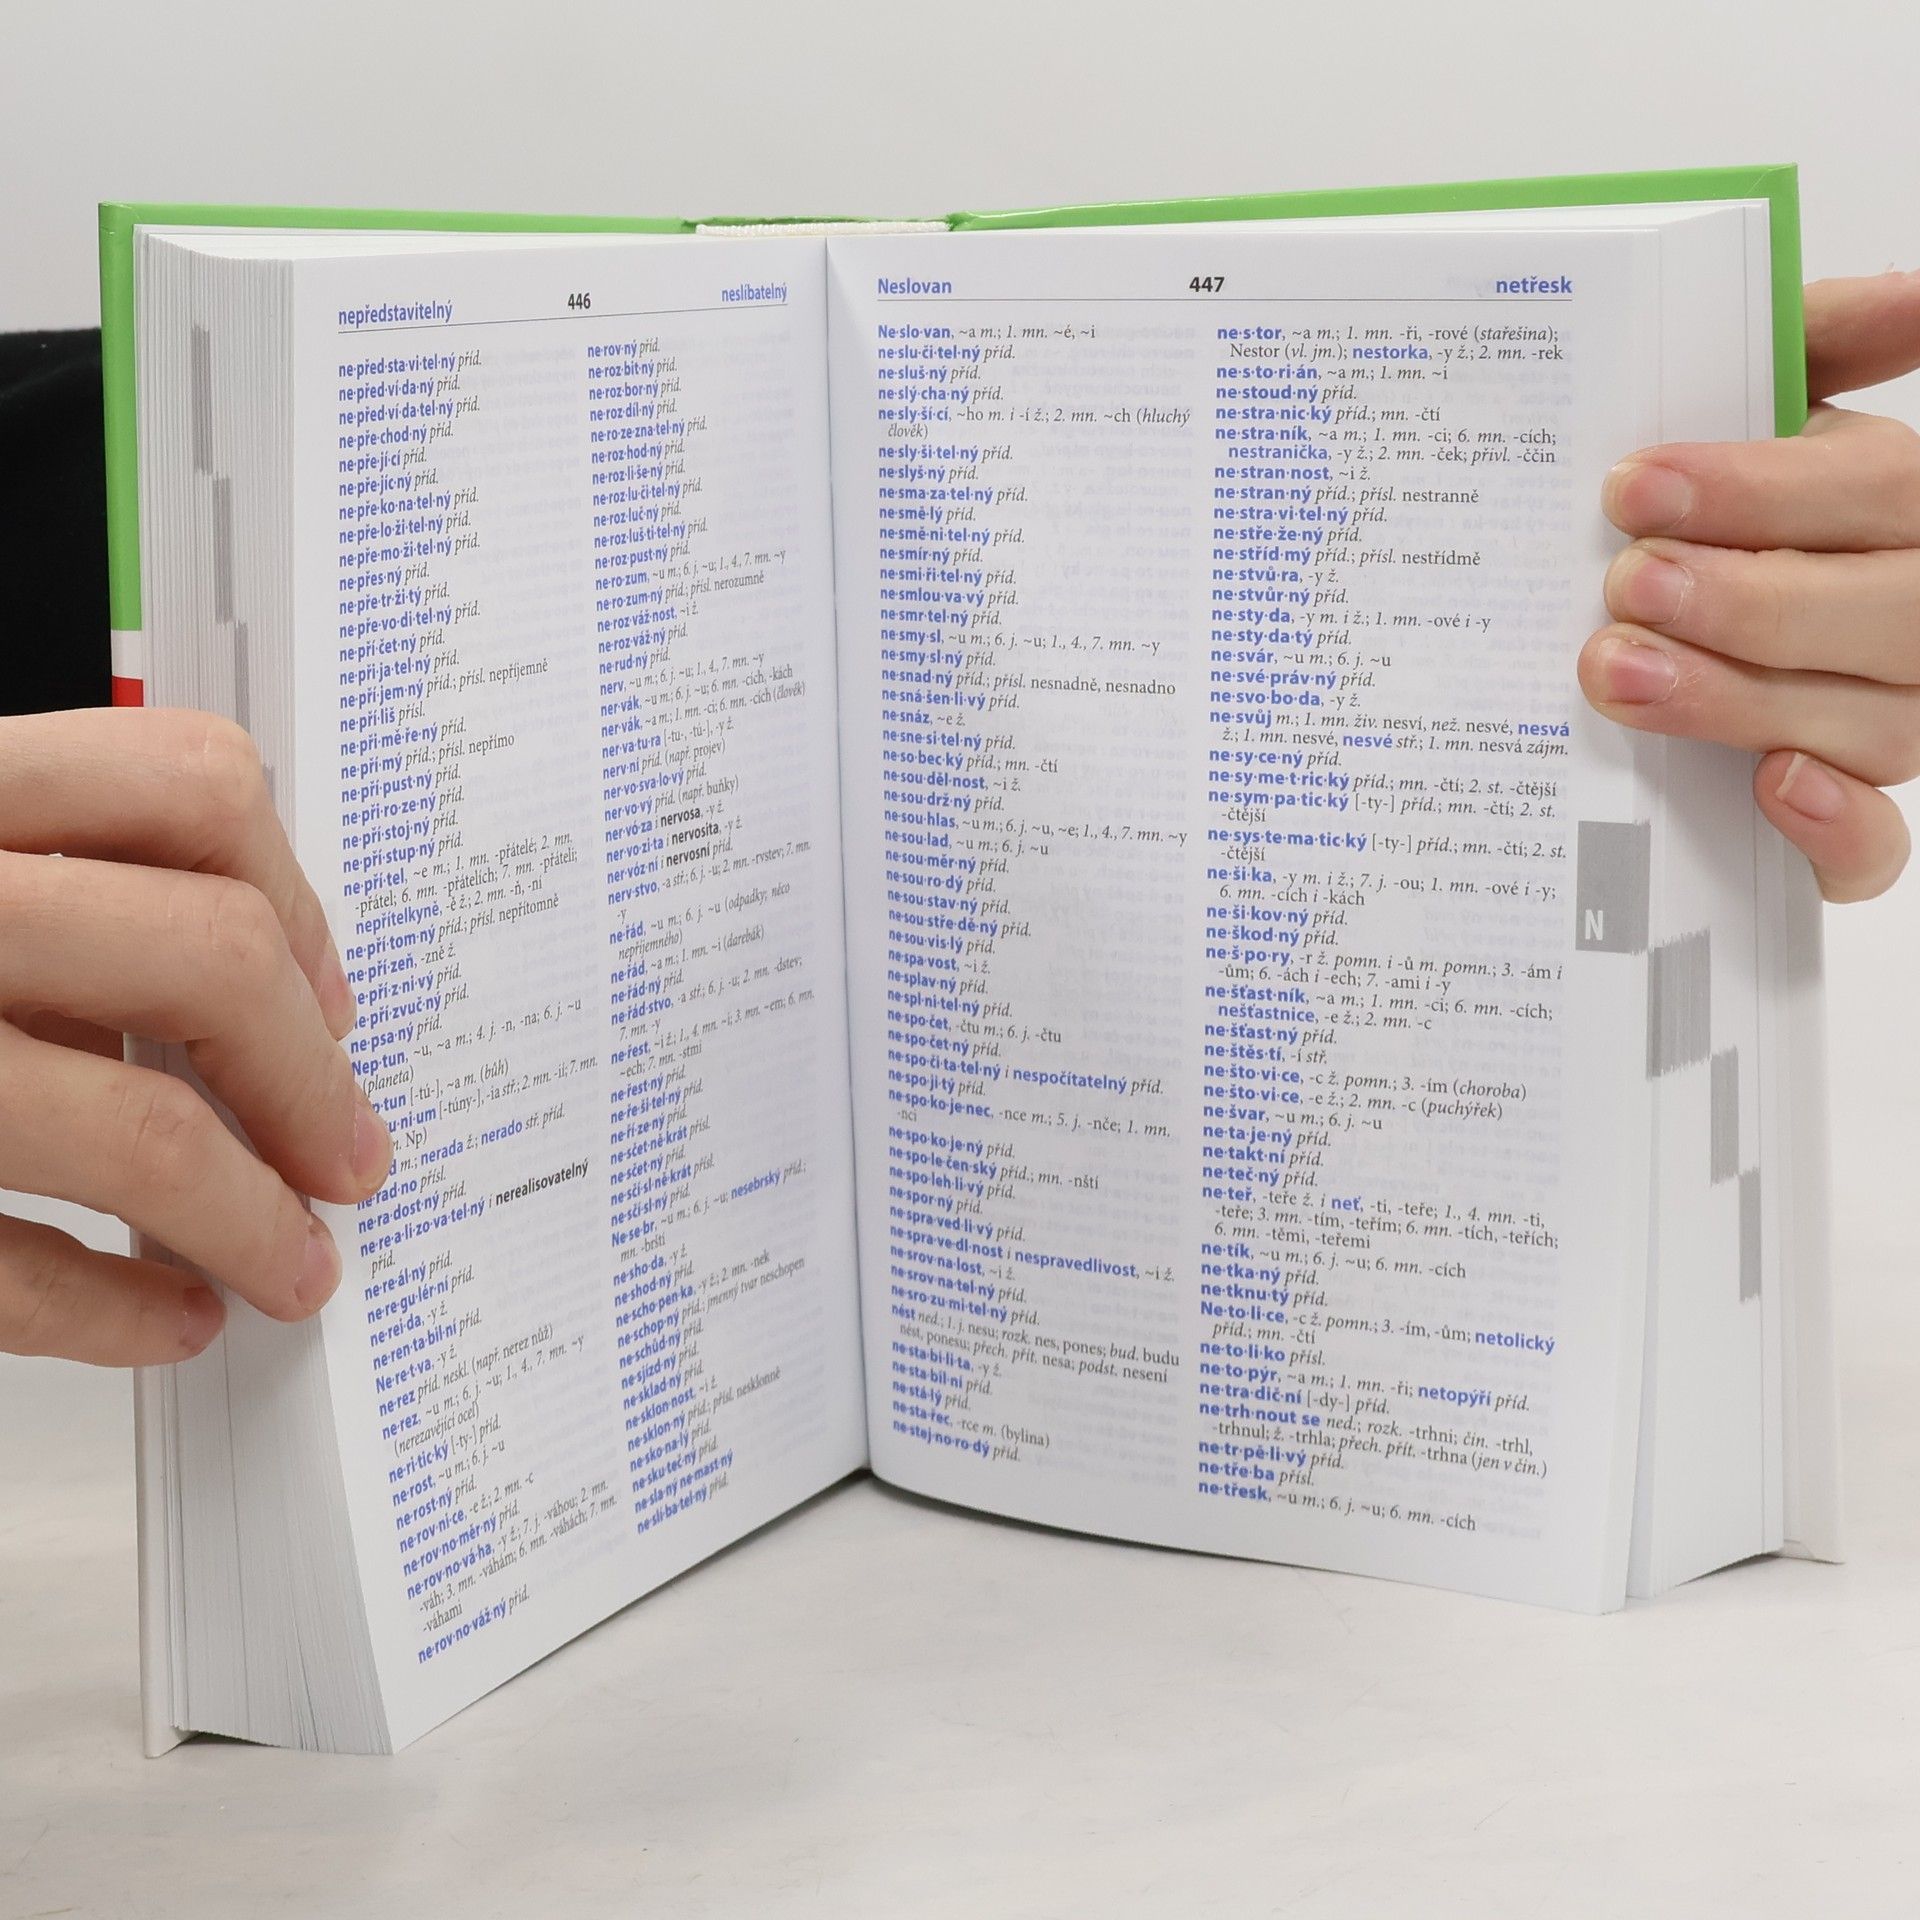 nepředstavitelný 446 neslíbatelný
ne·před·sta·vi·tel·ný příd.
ne·před·ví·da·ný příd.
ne·před·ví·da·tel·ný příd.
ne·pře·chod·ný příd.
ne·pře·jí·cí příd.
ne·pře·jíc·ný příd.
ne·pře·ko·na·tel·ný příd.
ne·pře·lo·ži·tel·ný příd.
ne·pře·mo·ži·tel·ný příd.
ne·přes·ný příd.
ne·pře·tr·ži·tý příd.
ne·pře·vo·di·tel·ný příd.
ne·pří·čet·ný příd.
ne·při·ja·tel·ný příd.
ne·pří·jem·ný příd.; přísl. nepříjemně
ne·pří·liš přísl.
ne·při·mě·ře·ný příd.
ne·pří·mý příd.; přísl. nepřímo
ne·pří·pust·ný příd.
ne·při·ro·ze·ný příd.
ne·pří·stoj·ný příd.
ne·pří·stup·ný příd.
ne·pří·tel, ~e m.; 1. mn. -přátelé; 2. mn.
-přátel; 6. mn. -přátelích; 7. mn. -přáteli;
nepřítelkyně, -ě ž.; 2. mn. -ň, -ní
ne·pří·tom·ný příd.; přísl. nepřítomně
ne·pří·zeň, -zně ž.
ne·pří·z·ni·vý příd.
ne·pří·zvuč·ný příd.
ne·psa·ný příd.
Nep·tun, ~u, ~a m.; 4. j. -n, -na; 6. j. ~u
(planeta)
p·tun [-tú-], ~a m. (bůh)
u·ni·um [-túny-], -ia stř.; 2. mn. -ií; 7. mn.
n. Np)
d m.; nerada ž.; nerado stř. příd.
ne·rad·no přísl.
ne·ra·dost·ný příd.
ne·re·a·li·zo·va·tel·ný i nerealisovatelný
příd.
ne·re·ál·ný příd.
ne·re·gu·lér·ní příd.
ne·rei·da, -y ž.
ne·ren·ta·bil·ní příd.
Ne·re·t·va, -y ž.
ne·rez příd. neskl. (např. nerez nůž)
ne·rez, ~u m.; 6. j. ~u; 1., 4., 7. mn. ~y
(nerezavějící ocel)
ne·ri·tic·ký [-ty-] příd.
ne·rost, ~u m.; 6. j. ~u
ne·rost·ný příd.
ne·rov·ni·ce, -e ž.; 2. mn. -c
ne·rov·no·měr·ný příd.
ne·rov·no·vá·ha, -y ž.; 7. j. -váhou; 2. mn.
-váh; 3. mn. -váhám; 6. mn. -váhách; 7. mn.
-váhami
ne·rov·no·váž·ný příd.
ne·rov·ný příd.
ne·roz·bit·ný příd.
ne·roz·bor·ný příd.
ne·roz·díl·ný příd.
ne·ro·ze·zna·tel·ný příd.
ne·roz·hod·ný příd.
ne·roz·li·še·ný příd.
ne·roz·lu·či·tel·ný příd.
ne·roz·luč·ný příd.
ne·roz·luš·ti·tel·ný příd.
ne·roz·pust·ný příd.
ne·ro·zum, ~u m.; 6. j. ~u; 1., 4., 7. mn. ~y
ne·ro·zum·ný příd.; přísl. nerozumně
ne·roz·váž·nost, ~i ž.
ne·roz·váž·ný příd.
ne·rud·ný příd.
nerv, ~u m.; 6. j. ~u; 1., 4., 7. mn. ~y
ner·vák, ~u m.; 6. j. ~u; 6. mn. -cích, -kách
ner·vák, ~a m.; 1. mn. -ci; 6. mn. -cích (člověk)
ner·va·tu·ra [-tu-, -tú-], -y ž.
nerv·ní příd. (např. projev)
ner·vo·sva·lo·vý příd.
ner·vo·vý příd. (např. buňky)
ner·vó·za i nervosa, -y ž.
ner·vo·zi·ta i nervosita, -y ž.
ner·vóz·ní i nervosní příd.
nerv·stvo, -a stř.; 6. j. -u; 2. mn. -rvstev; 7. mn.
-y
ne·řád, ~u m.; 6. j. ~u (odpadky; něco
nepříjemného)
ne·řád, ~a m.; 1. mn. ~i (darebák)
ne·řád·ný příd.
ne·řád·stvo, -a stř.; 6. j. -u; 2. mn. -dstev;
7. mn. -y
ne·řest, ~i ž.; 1., 4. mn. ~i; 3. mn. ~em; 6. mn.
~ech; 7. mn. -stmi
ne·řest·ný příd.
ne·ře·ši·tel·ný příd.
ne·ří·ze·ný příd.
ne·sčet·ně·krát přísl.
ne·sčet·ný příd.
ne·sčí·sl·ně·krát přísl.
ne·sčí·sl·ný příd.
Ne·se·br, ~u m.; 6. j. ~u; nesebrský příd.;
mn. -brští
ne·sho·da, -y ž.
ne·shod·ný příd.
ne·scho·pen·ka, -y ž.; 2. mn. -nek
ne·schop·ný příd.; jmenný tvar neschopen
ne·schůd·ný příd.
ne·sjízd·ný příd.
ne·sklad·ný příd.
ne·sklon·nost, ~i ž.
ne·sklon·ný příd.; přísl. nesklonně
ne·sko·na·lý příd.
ne·sku·teč·ný příd.
ne·sla·ný ne·mast·ný
ne·slí·ba·tel·ný příd.
Neslovan 447 netřesk
Ne·slo·van, ~a m.; 1. mn. ~é, ~i
ne·slu·či·tel·ný příd.
ne·sluš·ný příd.
ne·slý·cha·ný příd.
ne·sly·ší·cí, ~ho m. i -í ž.; 2. mn. ~ch (hluchý
člověk)
ne·sly·ši·tel·ný příd.
ne·slyš·ný příd.
ne·sma·za·tel·ný příd.
ne·smě·lý příd.
ne·smě·ni·tel·ný příd.
ne·smír·ný příd.
ne·smi·ři·tel·ný příd.
ne·smlou·va·vý příd.
ne·smr·tel·ný příd.
ne·smy·sl, ~u m.; 6. j. ~u; 1., 4., 7. mn. ~y
ne·smy·sl·ný příd.
ne·snad·ný příd.; přísl. nesnadně, nesnadno
ne·sná·šen·li·vý příd.
ne·snáz, ~e ž.
ne·sne·si·tel·ný příd.
ne·so·bec·ký příd.; mn. -čtí
ne·sou·děl·nost, ~i ž.
ne·sou·drž·ný příd.
ne·sou·hlas, ~u m.; 6. j. ~u, ~e; 1., 4., 7. mn. ~y
ne·sou·lad, ~u m.; 6. j. ~u
ne·sou·měr·ný příd.
ne·sou·ro·dý příd.
ne·sou·stav·ný příd.
ne·sou·stře·dě·ný příd.
ne·sou·vis·lý příd.
ne·spa·vost, ~i ž.
ne·splav·ný příd.
ne·spl·ni·tel·ný příd.
ne·spo·čet, -čtu m.; 6. j. -čtu
ne·spo·čet·ný příd.
ne·spo·či·ta·tel·ný i nespočítatelný příd.
ne·spo·ji·tý příd.
ne·spo·ko·je·nec, -nce m.; 5. j. -nče; 1. mn.
-nci
ne·spo·ko·je·ný příd.
ne·spo·le·čen·ský příd.; mn. -nští
ne·spo·leh·li·vý příd.
ne·spor·ný příd.
ne·spra·ved·li·vý příd.
ne·spra·ve·dl·nost i nespravedlivost, ~i ž.
ne·srov·na·lost, ~i ž.
ne·srov·na·tel·ný příd.
ne·sro·zu·mi·tel·ný příd.
nést ned.; 1. j. nesu; rozk. nes, pones; bud. budu
nést, ponesu; přech. přít. nesa; podst. nesení
ne·sta·bi·li·ta, -y ž.
ne·sta·bil·ní příd.
ne·stá·lý příd.
ne·sta·řec, -rce m. (bylina)
ne·stej·no·ro·dý příd.
ne·s·tor, ~a m.; 1. mn. -ři, -rové (stařešina);
Nestor (vl. jm.); nestorka, -y ž.; 2. mn. -rek
ne·s·to·ri·án, ~a m.; 1. mn. ~i
ne·stoud·ný příd.
ne·stra·nic·ký příd.; mn. -čtí
ne·stra·ník, ~a m.; 1. mn. -ci; 6. mn. -cích;
nestranička, -y ž.; 2. mn. -ček; přivl. -ččin
ne·stran·nost, ~i ž.
ne·stran·ný příd.; přísl. nestranně
ne·stra·vi·tel·ný příd.
ne·stře·že·ný příd.
ne·stříd·mý příd.; přísl. nestřídmě
ne·stvů·ra, -y ž.
ne·stvůr·ný příd.
ne·sty·da, -y m. i ž.; 1. mn. -ové i -y
ne·sty·da·tý příd.
ne·svár, ~u m.; 6. j. ~u
ne·své·práv·ný příd.
ne·svo·bo·da, -y ž.
ne·svůj m.; 1. mn. živ. nesví, než. nesvé, nesvá
ž.; 1. mn. nesvé, nesvé stř.; 1. mn. nesvá zájm.
ne·sy·ce·ný příd.
ne·sy·me·t·ric·ký příd.; mn. -čtí; 2. st. -čtější
ne·sym·pa·tic·ký [-ty-] příd.; mn. -čtí; 2. st.
-čtější
ne·sys·te·ma·tic·ký [-ty-] příd.; mn. -čtí; 2. st.
-čtější
ne·ši·ka, -y m. i ž.; 7. j. -ou; 1. mn. -ové i -y;
6. mn. -cích i -kách
ne·ši·kov·ný příd.
ne·škod·ný příd.
ne·š·po·ry, -r ž. pomn. i -ů m. pomn.; 3. -ám i
-ům; 6. -ách i -ech; 7. -ami i -y
ne·šťast·ník, ~a m.; 1. mn. -ci; 6. mn. -cích;
nešťastnice, -e ž.; 2. mn. -c
ne·šťast·ný příd.
ne·štěs·tí, -í stř.
ne·što·vi·ce, -c ž. pomn.; 3. -ím (choroba)
ne·što·vi·ce, -e ž.; 2. mn. -c (puchýřek)
ne·švar, ~u m.; 6. j. ~u
ne·ta·je·ný příd.
ne·takt·ní příd.
ne·teč·ný příd.
ne·teř, -teře ž. i neť, -ti, -teře; 1., 4. mn. -ti,
-teře; 3. mn. -tím, -teřím; 6. mn. -tích, -teřích;
6. mn. -těmi, -teřemi
ne·tík, ~u m.; 6. j. ~u; 6. mn. -cích
ne·tka·ný příd.
ne·tknu·tý příd.
Ne·to·li·ce, -c ž. pomn.; 3. -ím, -ům; netolický
příd.; mn. -čtí
ne·to·li·ko přísl.
ne·to·pýr, ~a m.; 1. mn. -ři; netopýří příd.
ne·tra·dič·ní [-dy-] příd.
ne·trh·nout se ned.; rozk. -trhni; čin. -trhl,
-trhnul; ž. -trhla; přech. přít. -trhna (jen v čin.)
ne·tr·pě·li·vý příd.
ne·tře·ba přísl.
ne·třesk, ~u m.; 6. j. ~u; 6. mn. -cích
N